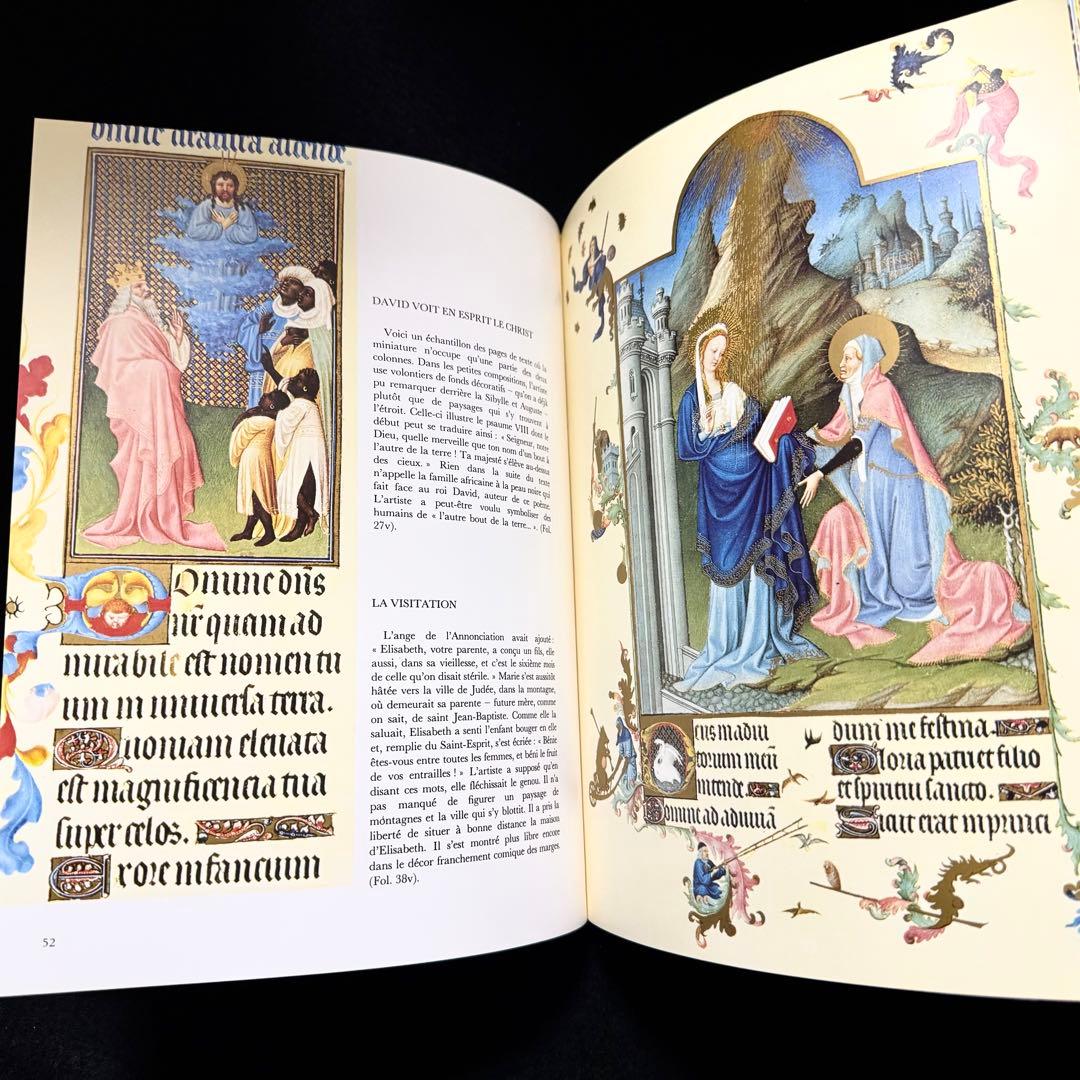 Domine dn̄s
nr̄ quam ad
mirabile est nomen tu
um in universa terra.
Quoniam elevata
est magnificencia tua
super celos.
Ex ore infancium
52
DAVID VOIT EN ESPRIT LE CHRIST
Voici un échantillon des pages de texte où la
miniature n'occupe qu'une partie des deux
colonnes. Dans les petites compositions, l'artiste
use volontiers de fonds décoratifs – qu'on a déjà
pu remarquer derrière la Sibylle et Auguste –
plutôt que de paysages qui s'y trouvent à
l'étroit. Celle-ci illustre le psaume VIII dont le
début peut se traduire ainsi : « Seigneur, notre
Dieu, quelle merveille que ton nom d'un bout à
l'autre de la terre ! Ta majesté s'élève au-dessus
des cieux. » Rien dans la suite du texte
n'appelle la famille africaine à la peau noire qui
fait face au roi David, auteur de ce poème.
L'artiste a peut-être voulu symboliser des
humains de « l'autre bout de la terre... ». (Fol.
27v).
LA VISITATION
L'ange de l'Annonciation avait ajouté :
« Elisabeth, votre parente, a conçu un fils, elle
aussi, dans sa vieillesse, et c'est le sixième mois
de celle qu'on disait stérile. » Marie s'est aussitôt
hâtée vers la ville de Judée, dans la montagne,
où demeurait sa parente – future mère, comme
on sait, de saint Jean-Baptiste. Comme elle la
saluait, Elisabeth a senti l'enfant bouger en elle
et, remplie du Saint-Esprit, s'est écriée : « Bénie
êtes-vous entre toutes les femmes, et béni le fruit
de vos entrailles ! » L'artiste a supposé qu'en
disant ces mots, elle fléchissait le genou. Il n'a
pas manqué de figurer un paysage de
montagnes et la ville qui s'y blottit. Il a pris la
liberté de situer à bonne distance la maison
d'Elisabeth. Il s'est montré plus libre encore
dans le décor franchement comique des marges.
(Fol. 38v).
Deus in adiu
torium meū
intende.
Domine ad adiuvā
dum me festina.
Gloria patri et filio
et spiritui sancto.
Sicut erat in princi